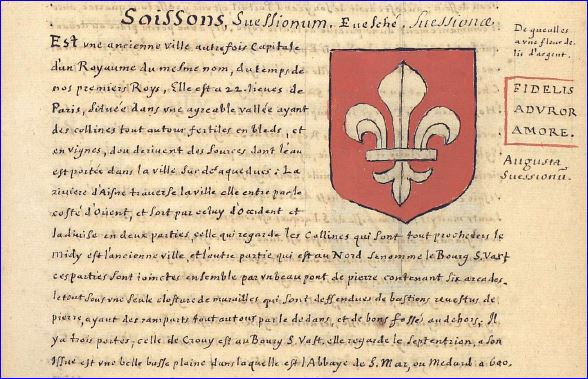 Soissons, Suessionum. Euesché. Suessionæ.
De gueulles
a vne fleur de
lis d'argent.
FIDELIS
ADVROR
AMORE.
Augusta
Suessionū.
Est vne ancienne ville autrefois Capitale
d'un Royaume du mesme nom, du temps de
nos premiers Roys, Elle est a 22. lieues de
Paris, située dans vne agreable vallée ayant
des collines tout autour fertiles en bleds, et
en vignes, dou deriuent des sources dont l'eau
est portée dans la ville par des aqueducs: La
riuiere d'Aisne trauerse la ville elle entre par le
costé d'Orient, et sort par celuy d'Occident et
la diuise en deux parties, celle qui regarde les Collines qui sont tout proche vers le
midy est l'ancienne ville, et l'autre partie qui est au Nord se nomme le Bourg S. Vast
ces parties sont iointes ensemble par vn beau pont, de pierre contenant six arcades.
le tout sous vne seule closture de murailles qui sont deffendues de bastions reuestus de
pierre, ayant des ramparts tout autour par le dedans, et de bons fossé, au dehors: Il
y a trois portes, celle de Crouy est au Bourg S. Vast, elle regarde le Septentrion, a son
Issue est vne belle basse plaine dans laquelle est l'Abbaye de S. Mar, ou Medard a 600.